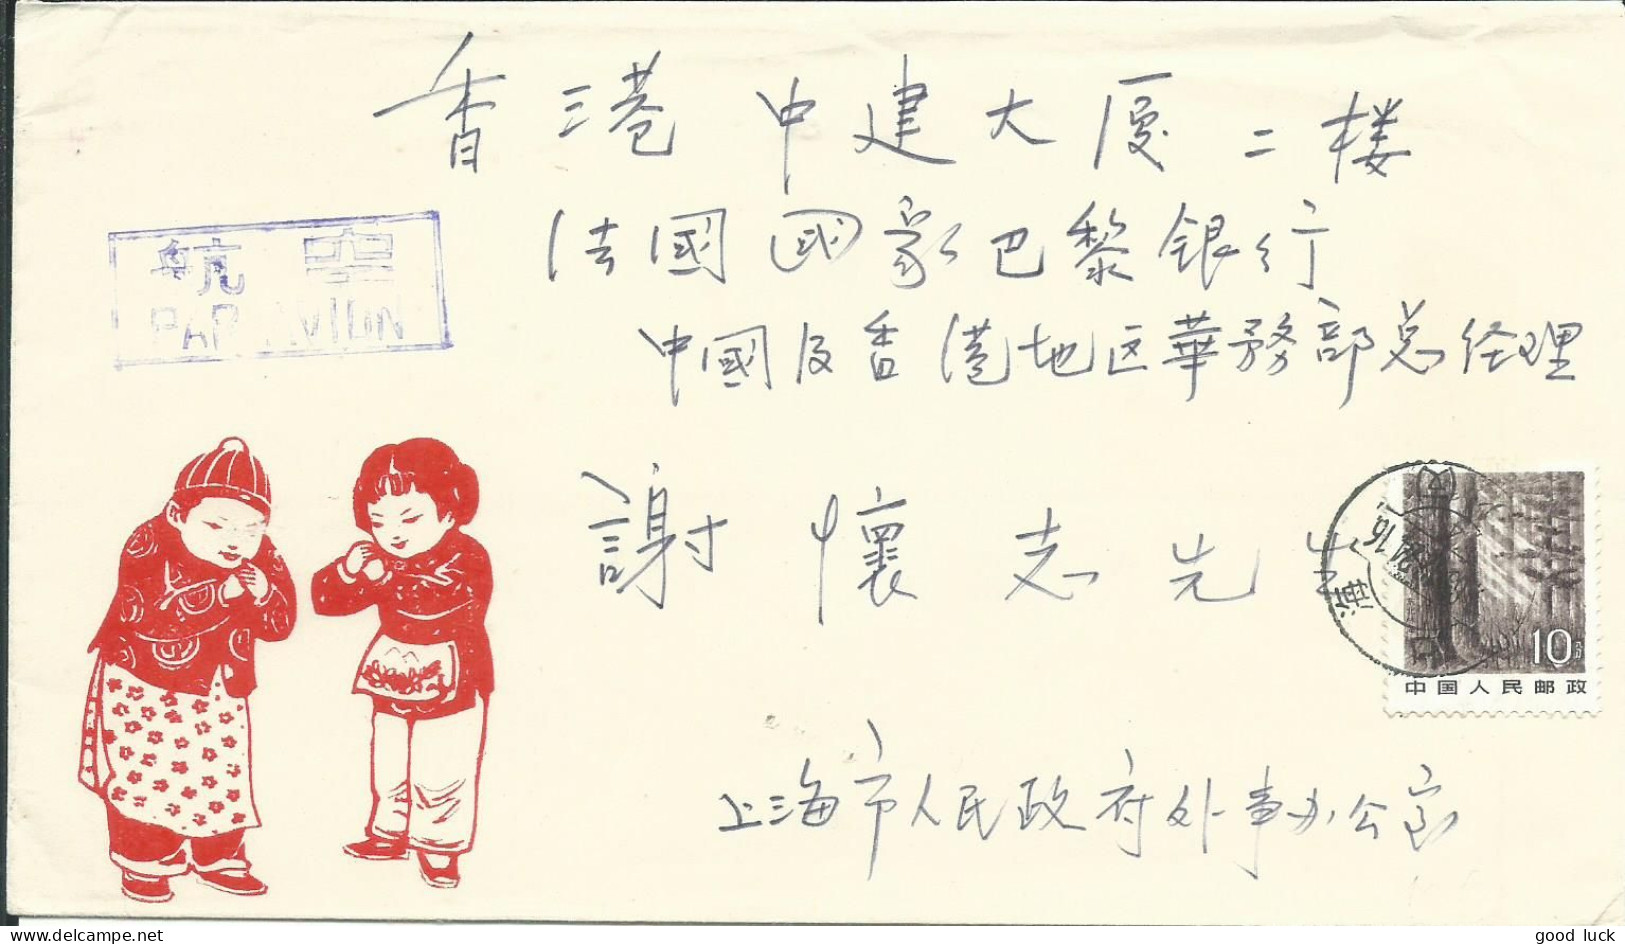 香港 中建大厦 二楼
法國國家巴黎銀行
中國及香港地区華務部总经理
航空
PAR AVION
謝懷志先生
上海
10分
中国人民邮政
上海市人民政府外事办公室
delcampe.net
good luck